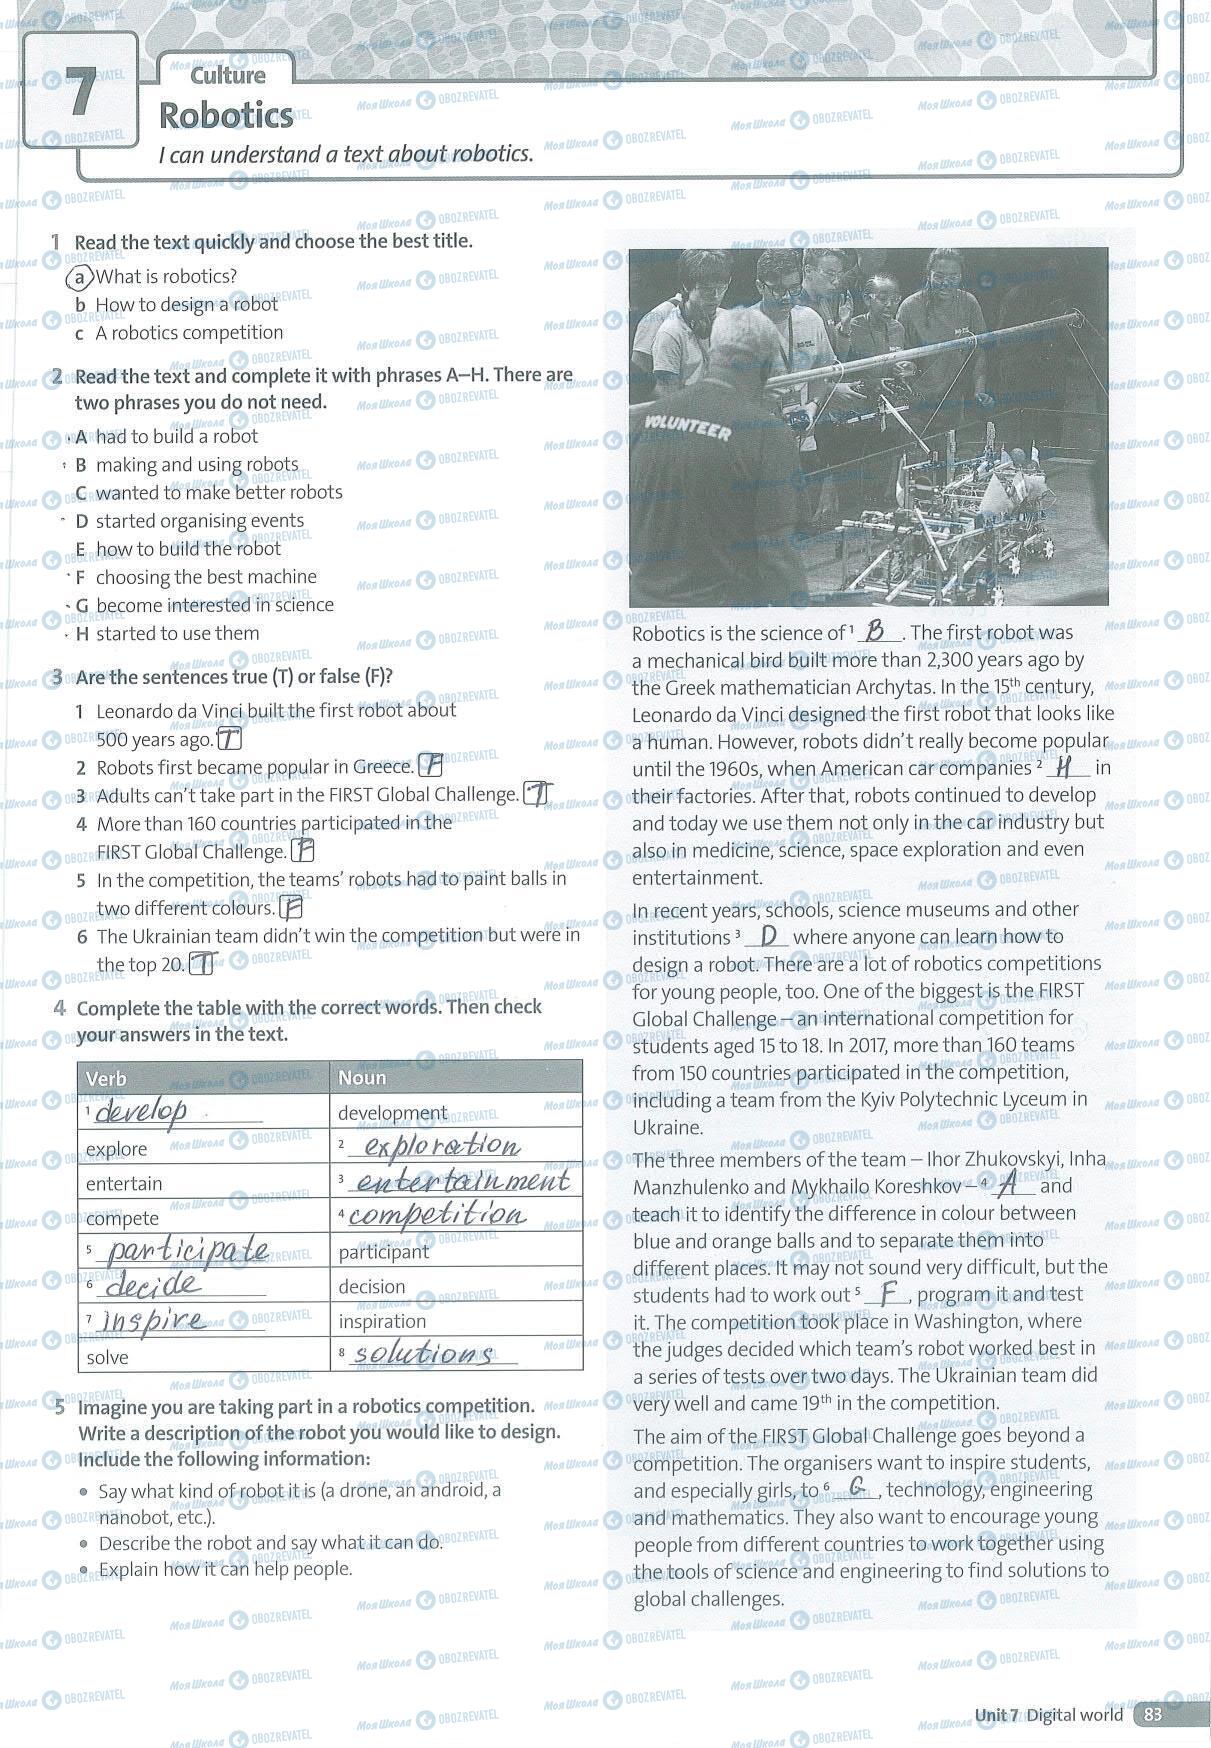 7
Culture
Robotics
I can understand a text about robotics.
1 Read the text quickly and choose the best title.
a What is robotics?
b How to design a robot
c A robotics competition
2 Read the text and complete it with phrases A–H. There are
two phrases you do not need.
A had to build a robot
B making and using robots
C wanted to make better robots
D started organising events
E how to build the robot
F choosing the best machine
G become interested in science
H started to use them
3 Are the sentences true (T) or false (F)?
1 Leonardo da Vinci built the first robot about
500 years ago. T
2 Robots first became popular in Greece. F
3 Adults can't take part in the FIRST Global Challenge. T
4 More than 160 countries participated in the
FIRST Global Challenge. F
5 In the competition, the teams' robots had to paint balls in
two different colours. F
6 The Ukrainian team didn't win the competition but were in
the top 20. T
4 Complete the table with the correct words. Then check
your answers in the text.
Verb Noun
1 develop development
explore 2 exploration
entertain 3 entertainment
compete 4 competition
5 participate participant
6 decide decision
7 inspire inspiration
solve 8 solutions
5 Imagine you are taking part in a robotics competition.
Write a description of the robot you would like to design.
Include the following information:
• Say what kind of robot it is (a drone, an android, a
nanobot, etc.).
• Describe the robot and say what it can do.
• Explain how it can help people.
VOLUNTEER
Robotics is the science of 1 B . The first robot was
a mechanical bird built more than 2,300 years ago by
the Greek mathematician Archytas. In the 15th century,
Leonardo da Vinci designed the first robot that looks like
a human. However, robots didn't really become popular
until the 1960s, when American car companies 2 H in
their factories. After that, robots continued to develop
and today we use them not only in the car industry but
also in medicine, science, space exploration and even
entertainment.
In recent years, schools, science museums and other
institutions 3 D where anyone can learn how to
design a robot. There are a lot of robotics competitions
for young people, too. One of the biggest is the FIRST
Global Challenge – an international competition for
students aged 15 to 18. In 2017, more than 160 teams
from 150 countries participated in the competition,
including a team from the Kyiv Polytechnic Lyceum in
Ukraine.
The three members of the team – Ihor Zhukovskyi, Inha
Manzhulenko and Mykhailo Koreshkov – 4 A and
teach it to identify the difference in colour between
blue and orange balls and to separate them into
different places. It may not sound very difficult, but the
students had to work out 5 F , program it and test
it. The competition took place in Washington, where
the judges decided which team's robot worked best in
a series of tests over two days. The Ukrainian team did
very well and came 19th in the competition.
The aim of the FIRST Global Challenge goes beyond a
competition. The organisers want to inspire students,
and especially girls, to 6 G , technology, engineering
and mathematics. They also want to encourage young
people from different countries to work together using
the tools of science and engineering to find solutions to
global challenges.
Unit 7 Digital world 83
Моя Школа OBOZREVATEL